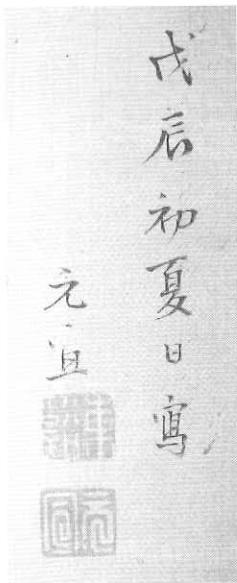 戊辰初夏日寫
元宜